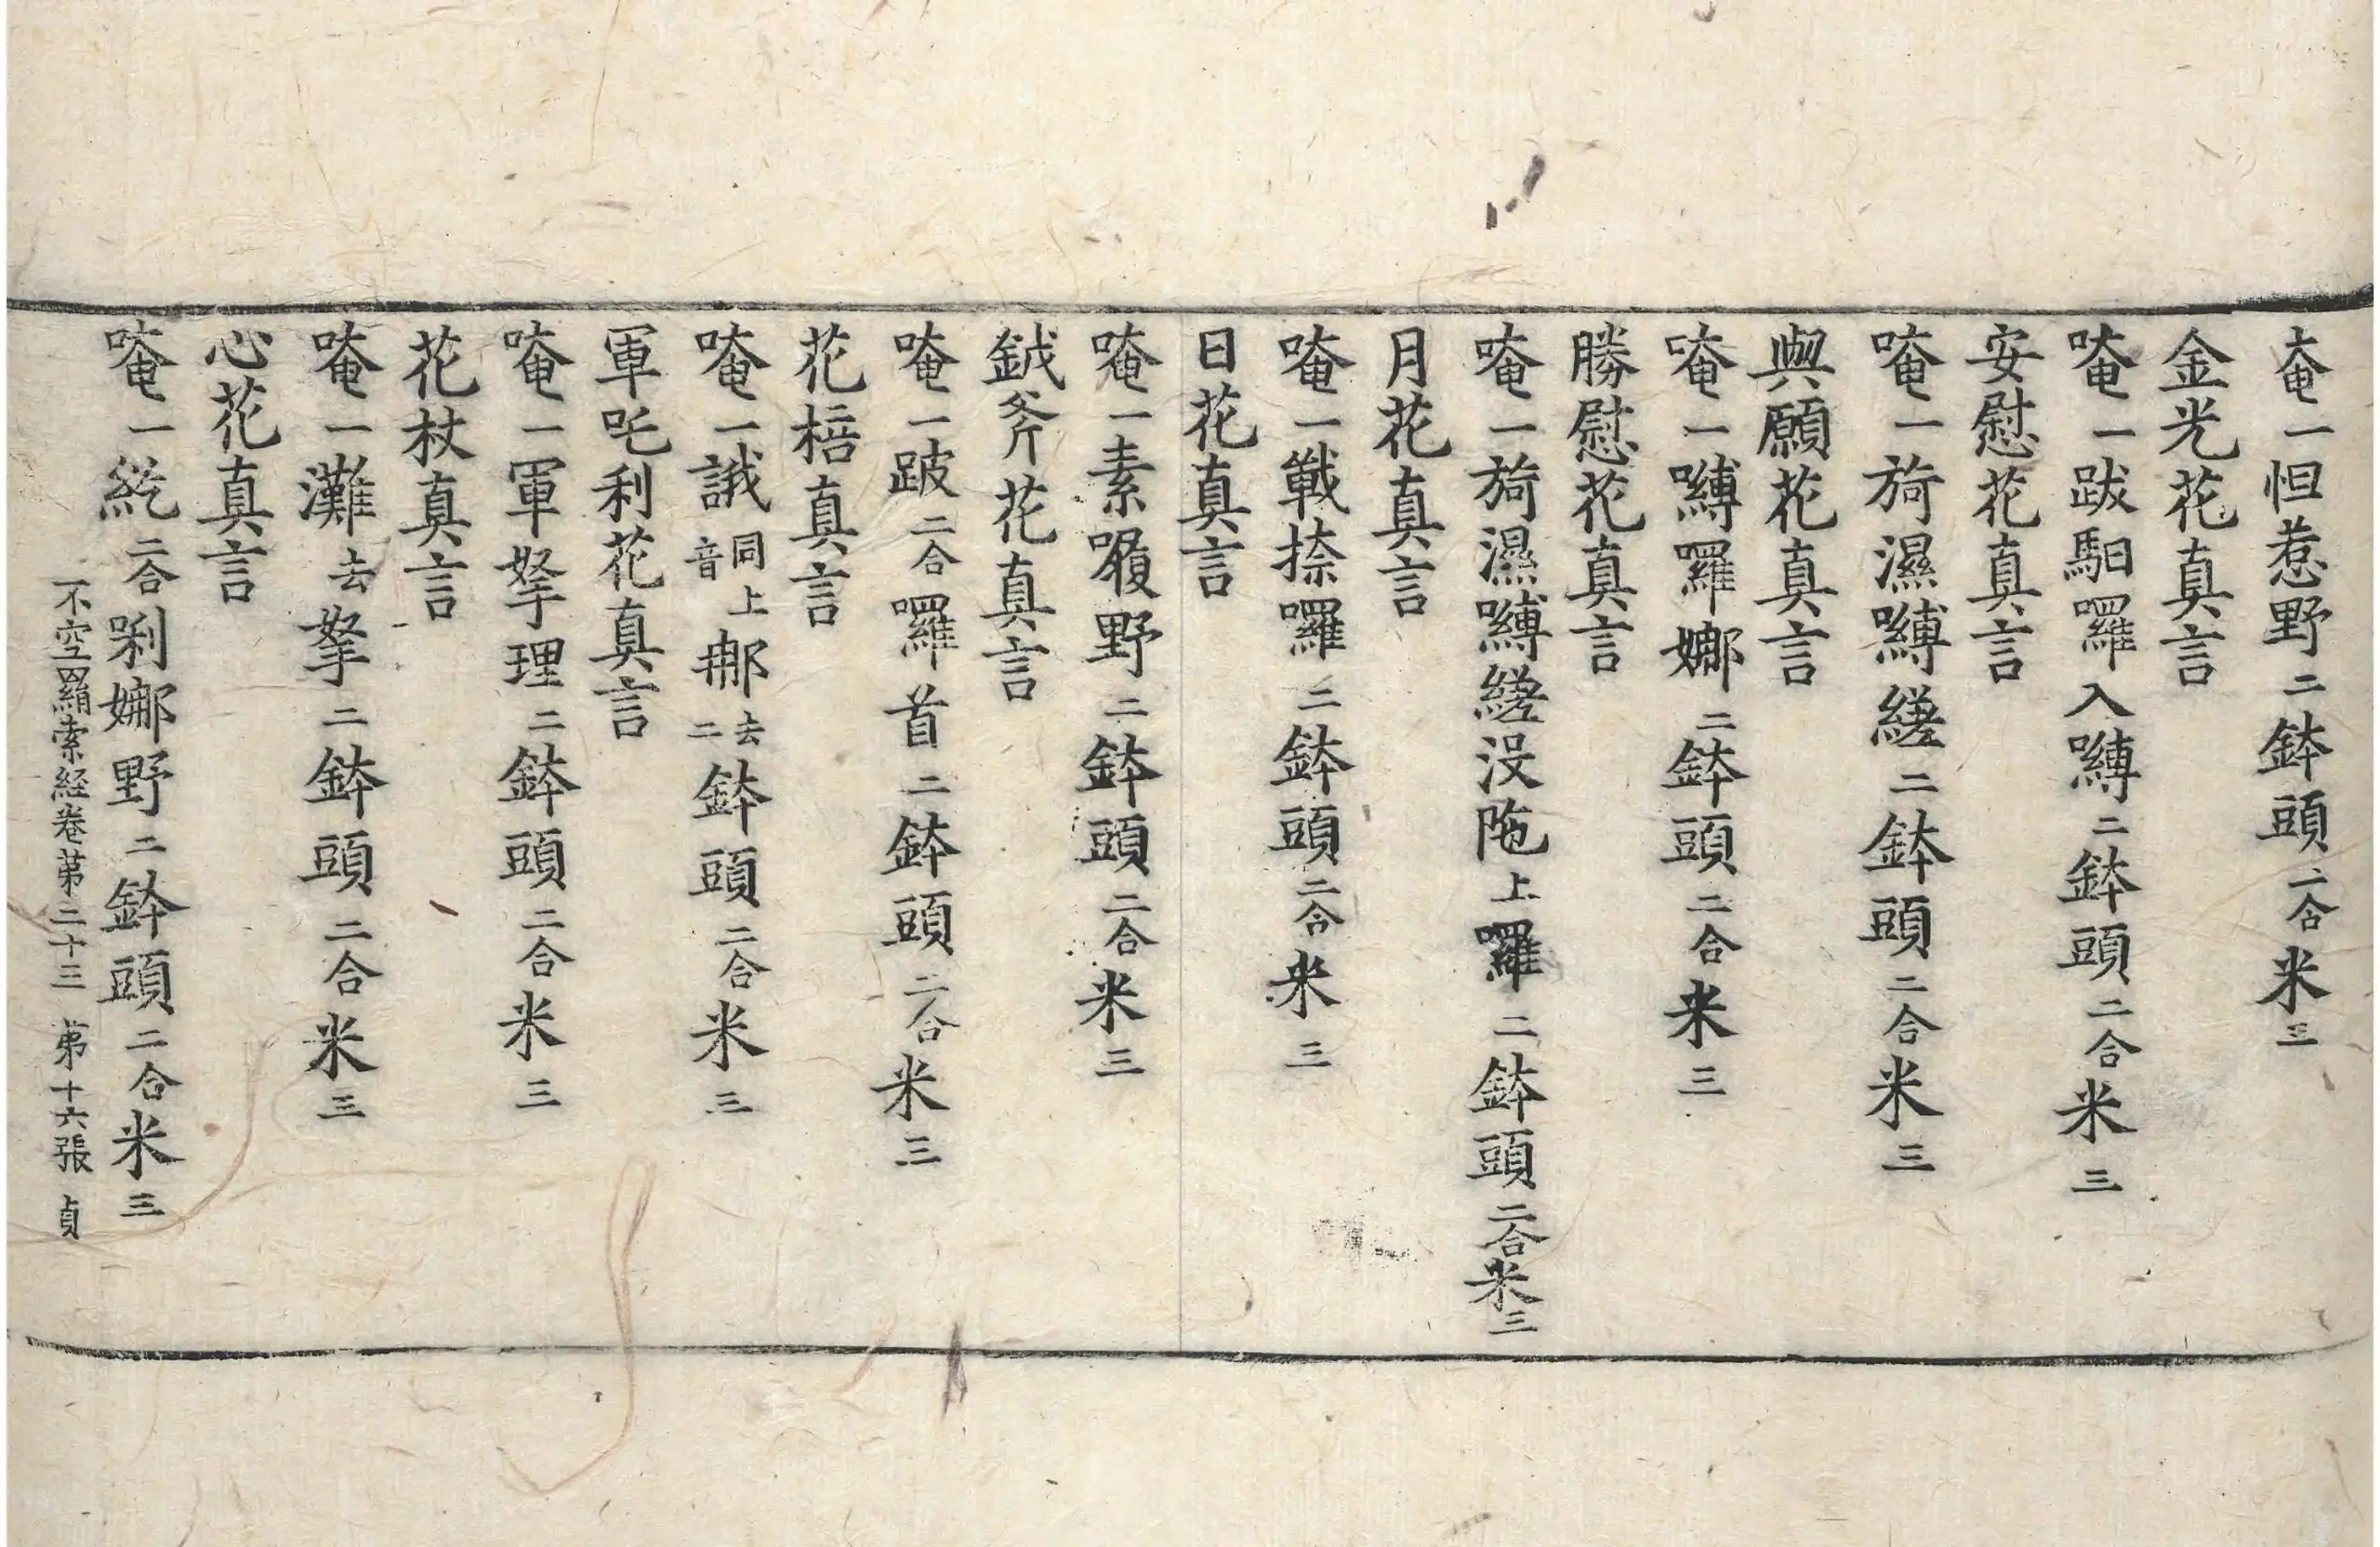 奄一怛惹野二鉢頭二合米三
金光花真言
唵一跋馹囉入嚩二鉢頭二合米三
安慰花真言
唵一旖濕嚩縒二鉢頭二合米三
與願花真言
唵一嚩羅娜二鉢頭二合米三
勝慰花真言
唵一旖濕嚩縒沒陁上囉二鉢頭二合米三
月花真言
唵一戰捺囉二鉢頭二合米三
日花真言
唵一素𡃤野二鉢頭二合米三
鉞斧花真言
唵一跛二合囉首二鉢頭二合米三
花棓真言
唵一誐同上音娜去二鉢頭二合米三
軍吒利花真言
唵一軍拏理二鉢頭二合米三
花杖真言
唵一灘去拏二鉢頭二合米三
心花真言
唵一紇二合唎娜野二鉢頭二合米三
不空羂索経卷第二十三 第十六張 貞